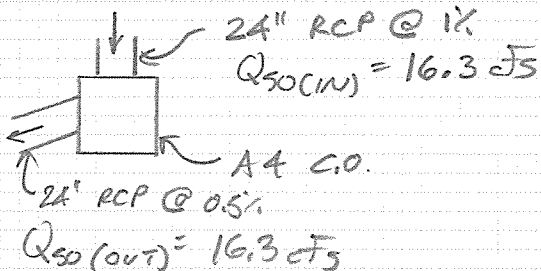 24" RCP @ 1%
Q50(IN) = 16.3 cfs
A4 C.O.
24" RCP @ 0.5%
Q50(OUT) = 16.3 cfs